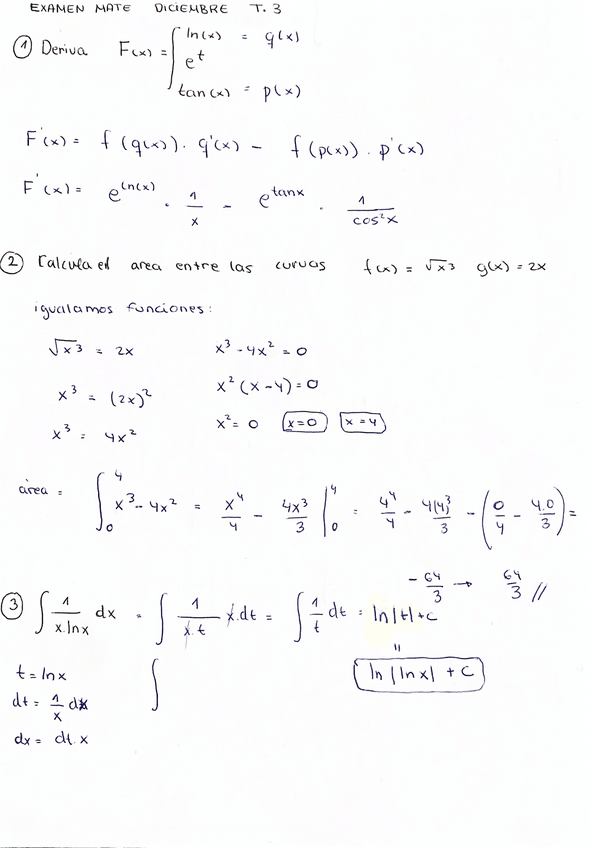 EXAMEN MATE DICIEMBRE T. 3
① Deriva F(x) = ∫ ln(x) = q(x)
e^t
tan(x) = p(x)
F'(x) = f(q(x)). q'(x) - f(p(x)). p'(x)
F'(x) = e^ln(x) . 1/x - e^tanx . 1/cos²x
② Calcula el area entre las curvas f(x) = √x³ g(x) = 2x
igualamos funciones:
√x³ = 2x x³ - 4x² = 0
x³ = (2x)² x² (x-4) = 0
x³ = 4x² x² = 0 x=0 x=4
área = ∫₀⁴ x³ - 4x² = x⁴/4 - 4x³/3 |₀⁴ = 4⁴/4 - 4(4)³/3 - (0/4 - 4.0/3) =
- 64/3 → 64/3 //
③ ∫ 1/x.lnx dx = ∫ 1/x.t x.dt = ∫ 1/t dt = ln|t|+c
=
t = lnx ∫ ln|lnx| + C
dt = 1/x dx
dx = dt.x